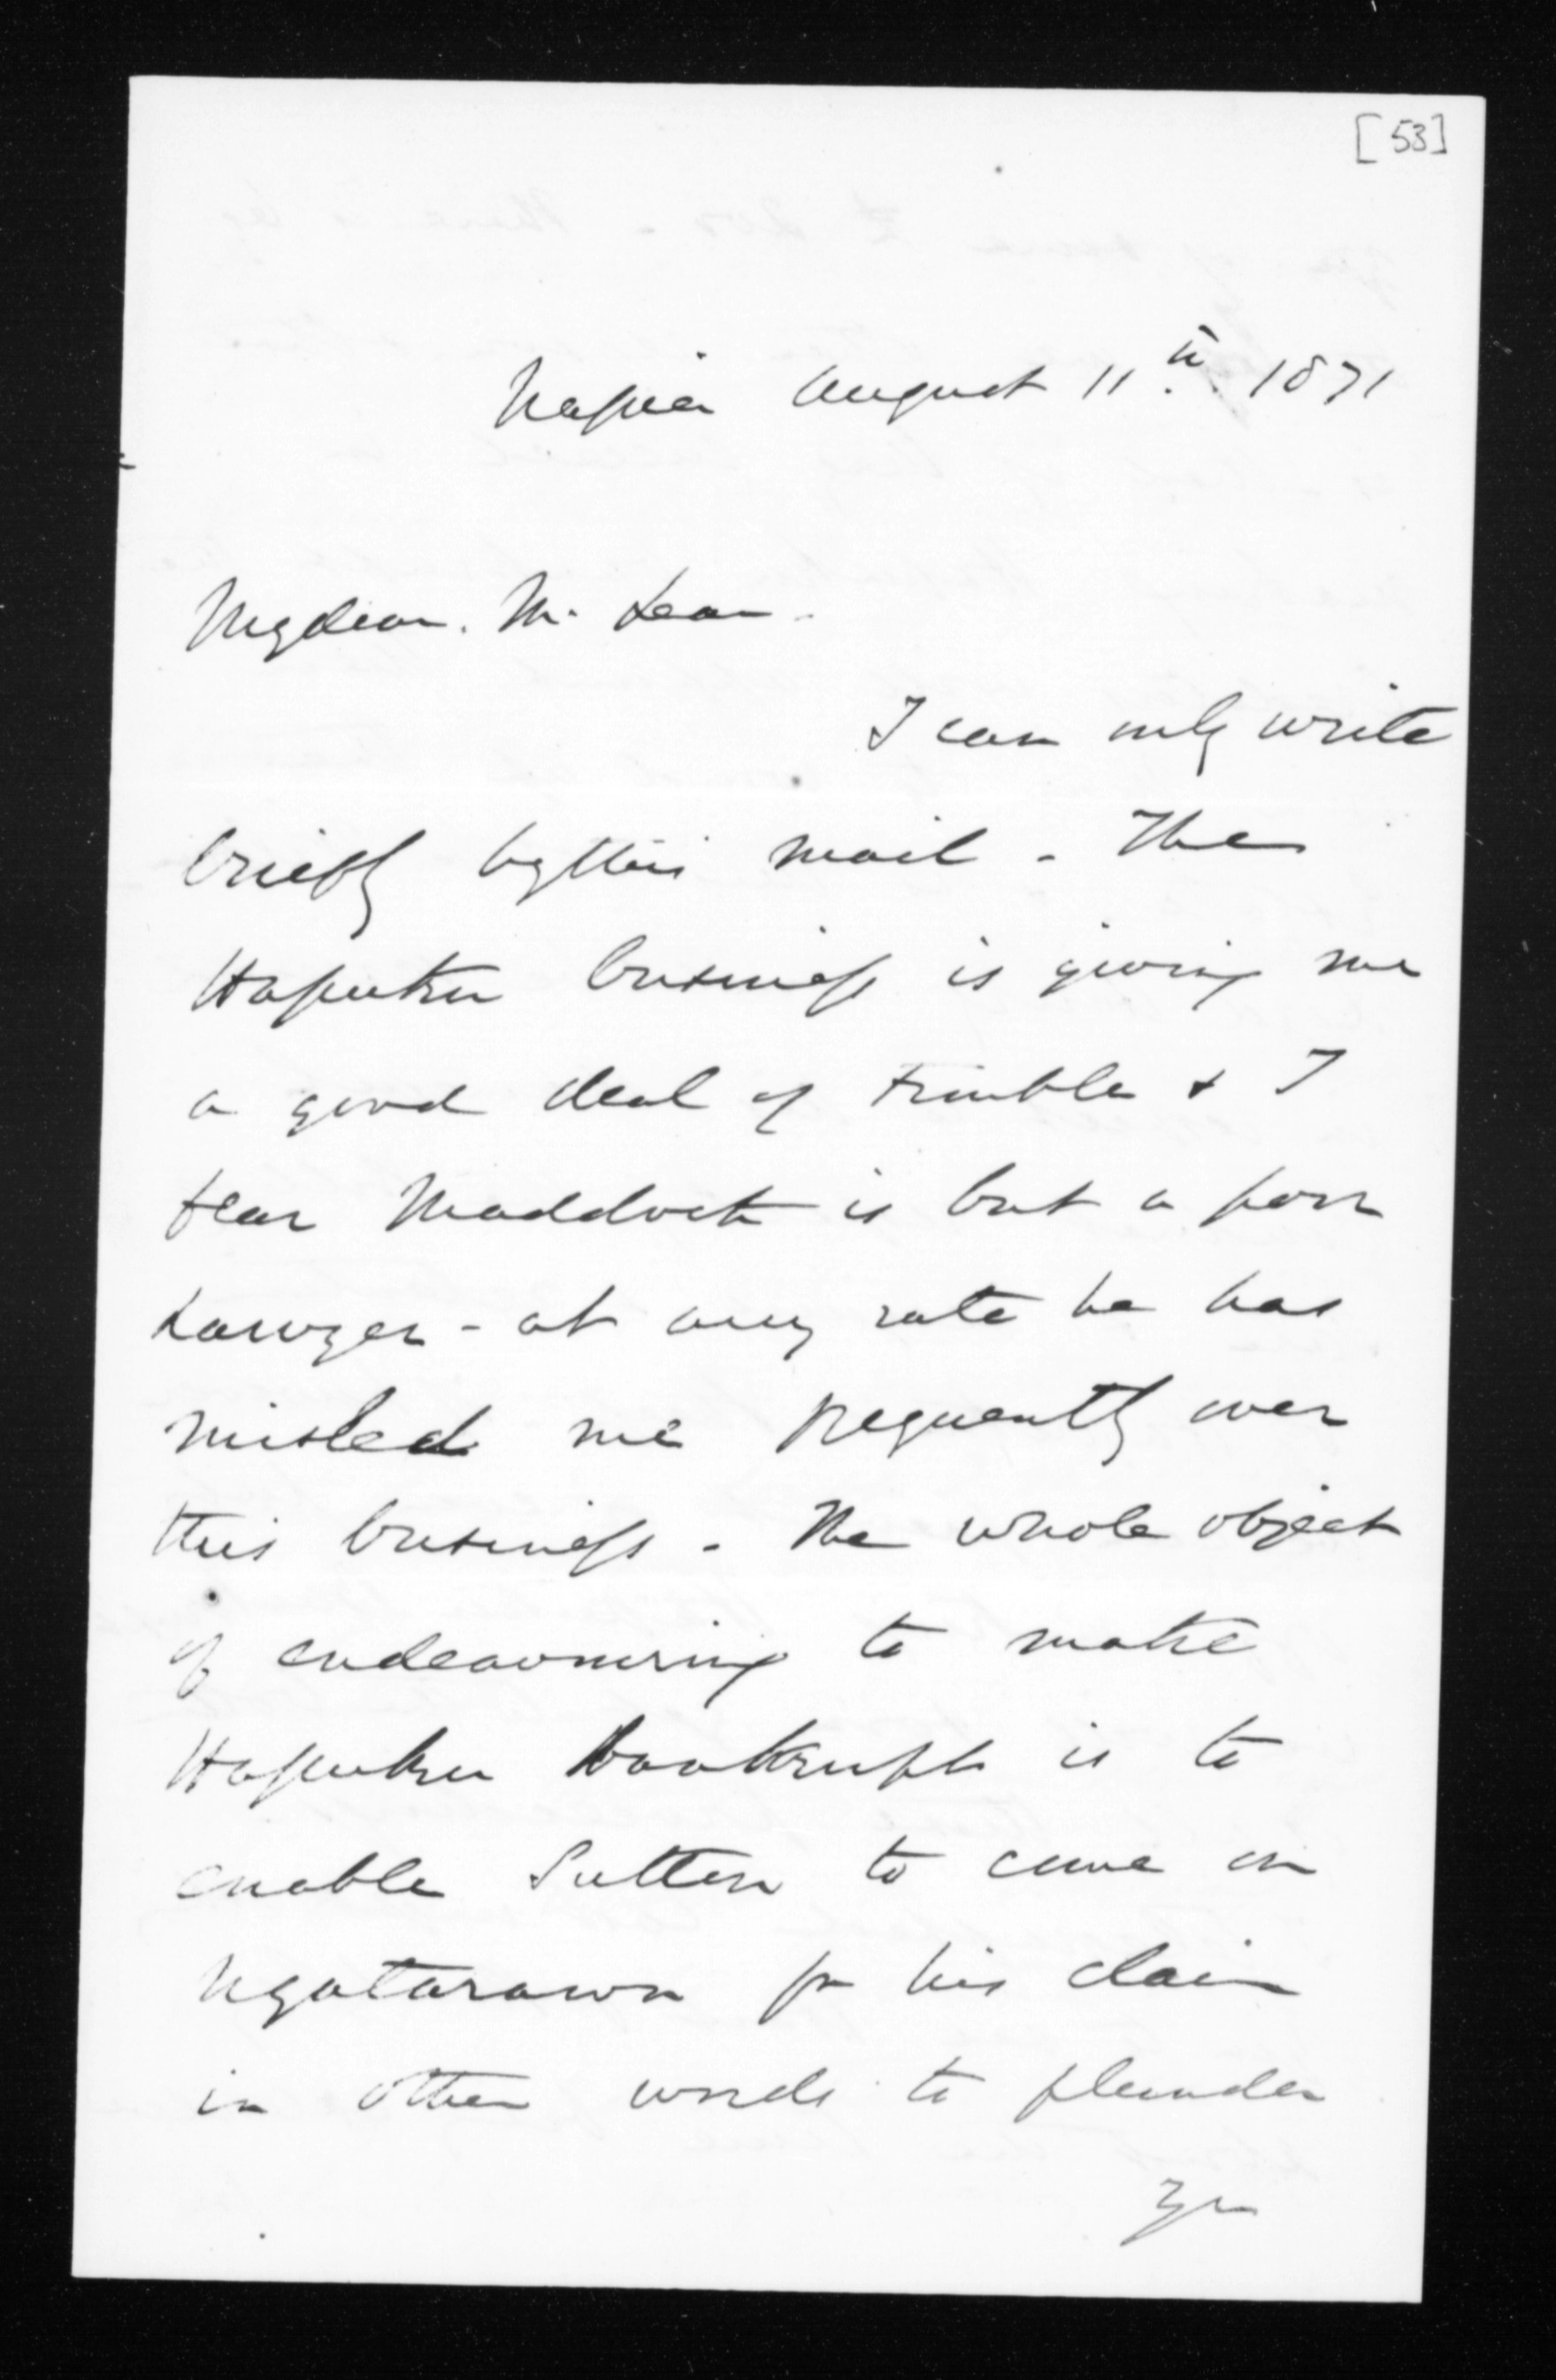 [53]
Napier August 11th. 1871
My dear. Mc Lean.
I can only write
briefly by this mail - The
Hapuku business is giving me
a good deal of trouble & I
fear Maddock is but a poor
Lawyer - at any rate he has
misled me frequently over
this business - The whole object
of endeavouring to make
Hapuku bankrupt is to
enable Sutton to come on
Ngatarawa for his claim
in other words to plunder
you